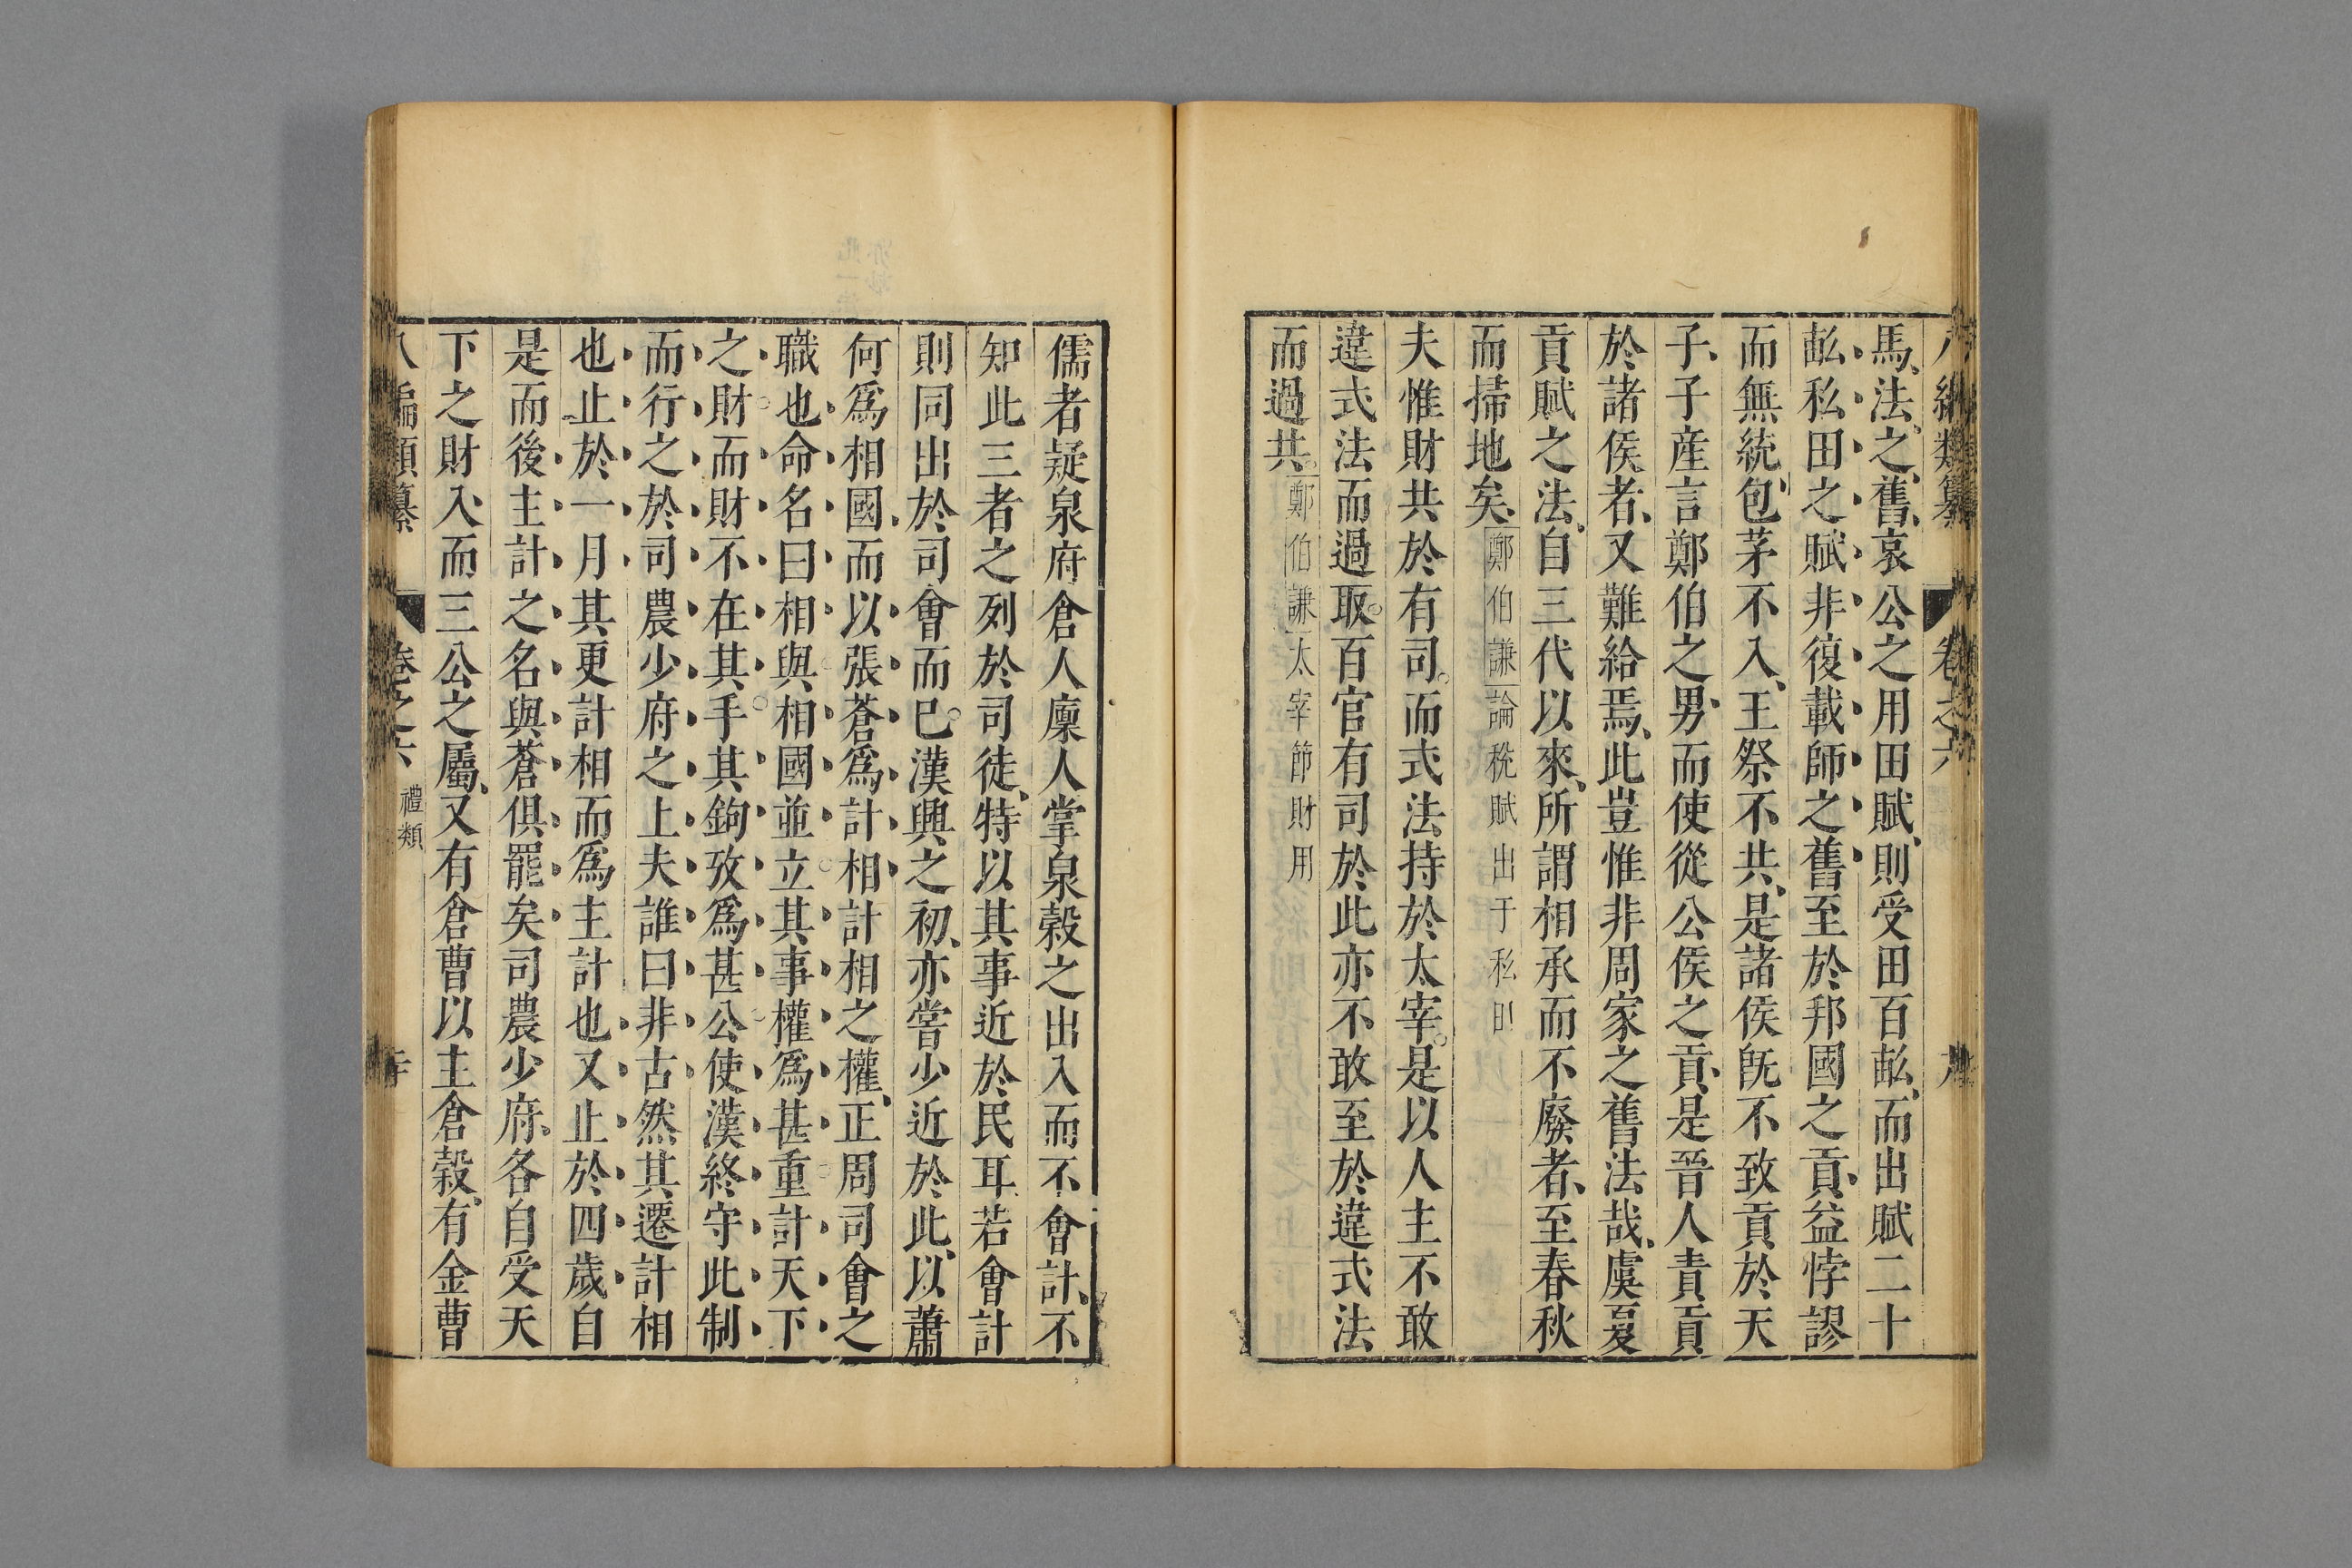 八編類纂 卷之六
馬法之舊哀公之用田賦則受田百畝而出賦二十
畝私田之賦非復載師之舊至於邦國之貢益悖謬
而無統包茅不入王祭不共是諸侯旣不致貢於天
子子産言鄭伯之男而使從公侯之貢是晉人責貢
於諸侯者又難給焉此豈惟非周家之舊法哉虞夏
貢賦之法自三代以來所謂相承而不廢者至春秋
而掃地矣鄭伯謙論稅賦出于私田
夫惟財共於有司而式法持於太宰是以人主不敢
違式法而過取百官有司於此亦不敢至於違式法
而過共鄭伯謙太宰節財用
儒者疑泉府倉人廩人掌泉穀之出入而不會計不
知此三者之列於司徒特以其事近於民耳若會計
則同出於司會而已漢興之初亦嘗少近於此以蕭
何爲相國而以張蒼爲計相計相之權正周司會之
職也命名曰相與相國並立其事權爲甚重計天下
之財而財不在其手其鉤攷爲甚公使漢終守此制
而行之於司農少府之上夫誰曰非古然其遷計相
也止於一月其更計相而爲主計也又止於四歲自
是而後主計之名與蒼俱罷矣司農少府各自受天
下之財入而三公之屬又有倉曹以主倉穀有金曹
八編類纂 卷之六 禮類